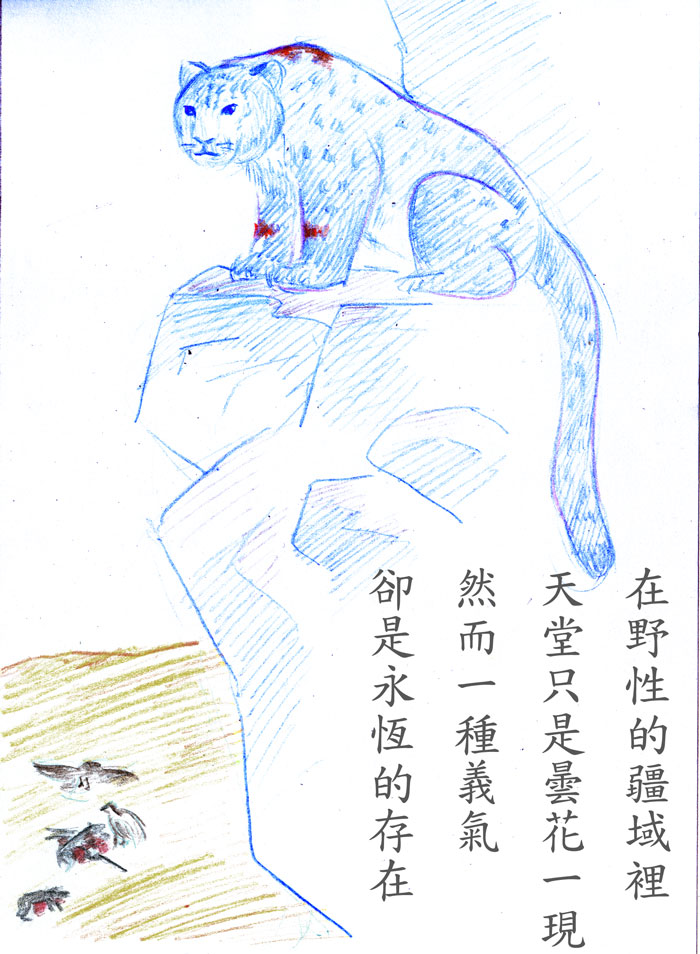 在野性的疆域裡
天堂只是曇花一現
然而一種義氣
卻是永恆的存在